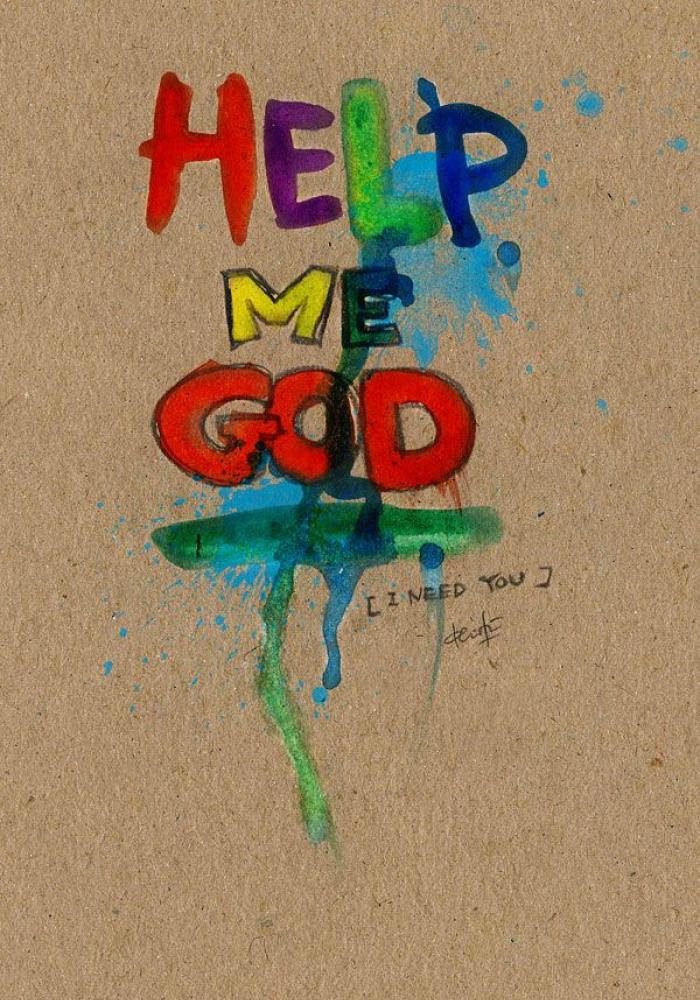 HELP
ME
GOD
[I NEED YOU]